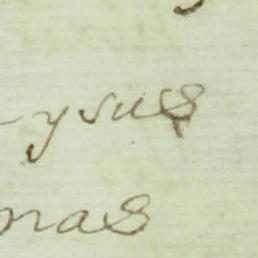 ysus
nas